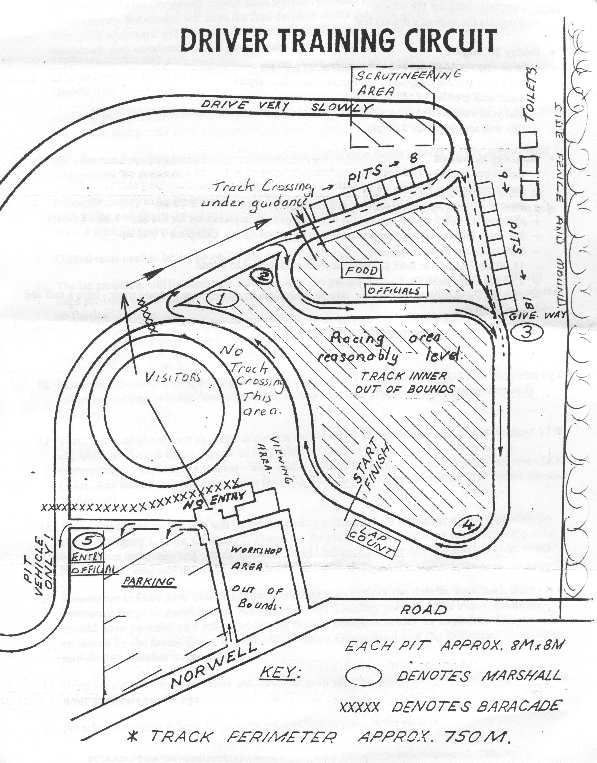 DRIVER TRAINING CIRCUIT
SCRUTINEERING
AREA
DRIVE VERY SLOWLY
TOILETS.
SIDE FENCE AND MOUND
PITS → 8
9 → PITS → 18
Track Crossing
under guidance
1
2
FOOD
OFFICIALS
GIVE WAY
3
Racing area
reasonably level.
TRACK INNER
OUT OF BOUNDS
VISITORS
No
Track
Crossing
This
area.
VIEWING
AREA
START
FINISH
LAP
COUNT
4
XXXXX
XXXXXXXXXXXXXXXXXXXXXXXX
NO ENTRY
5
ENTRY
OFFICIAL
PIT
VEHICLE
ONLY!
PARKING
WORKSHOP
AREA
OUT OF
Bounds.
NORWELL
ROAD
EACH PIT APPROX. 8M x 8M
KEY:
DENOTES MARSHALL
XXXXX DENOTES BARACADE
* TRACK PERIMETER APPROX. 750 M.